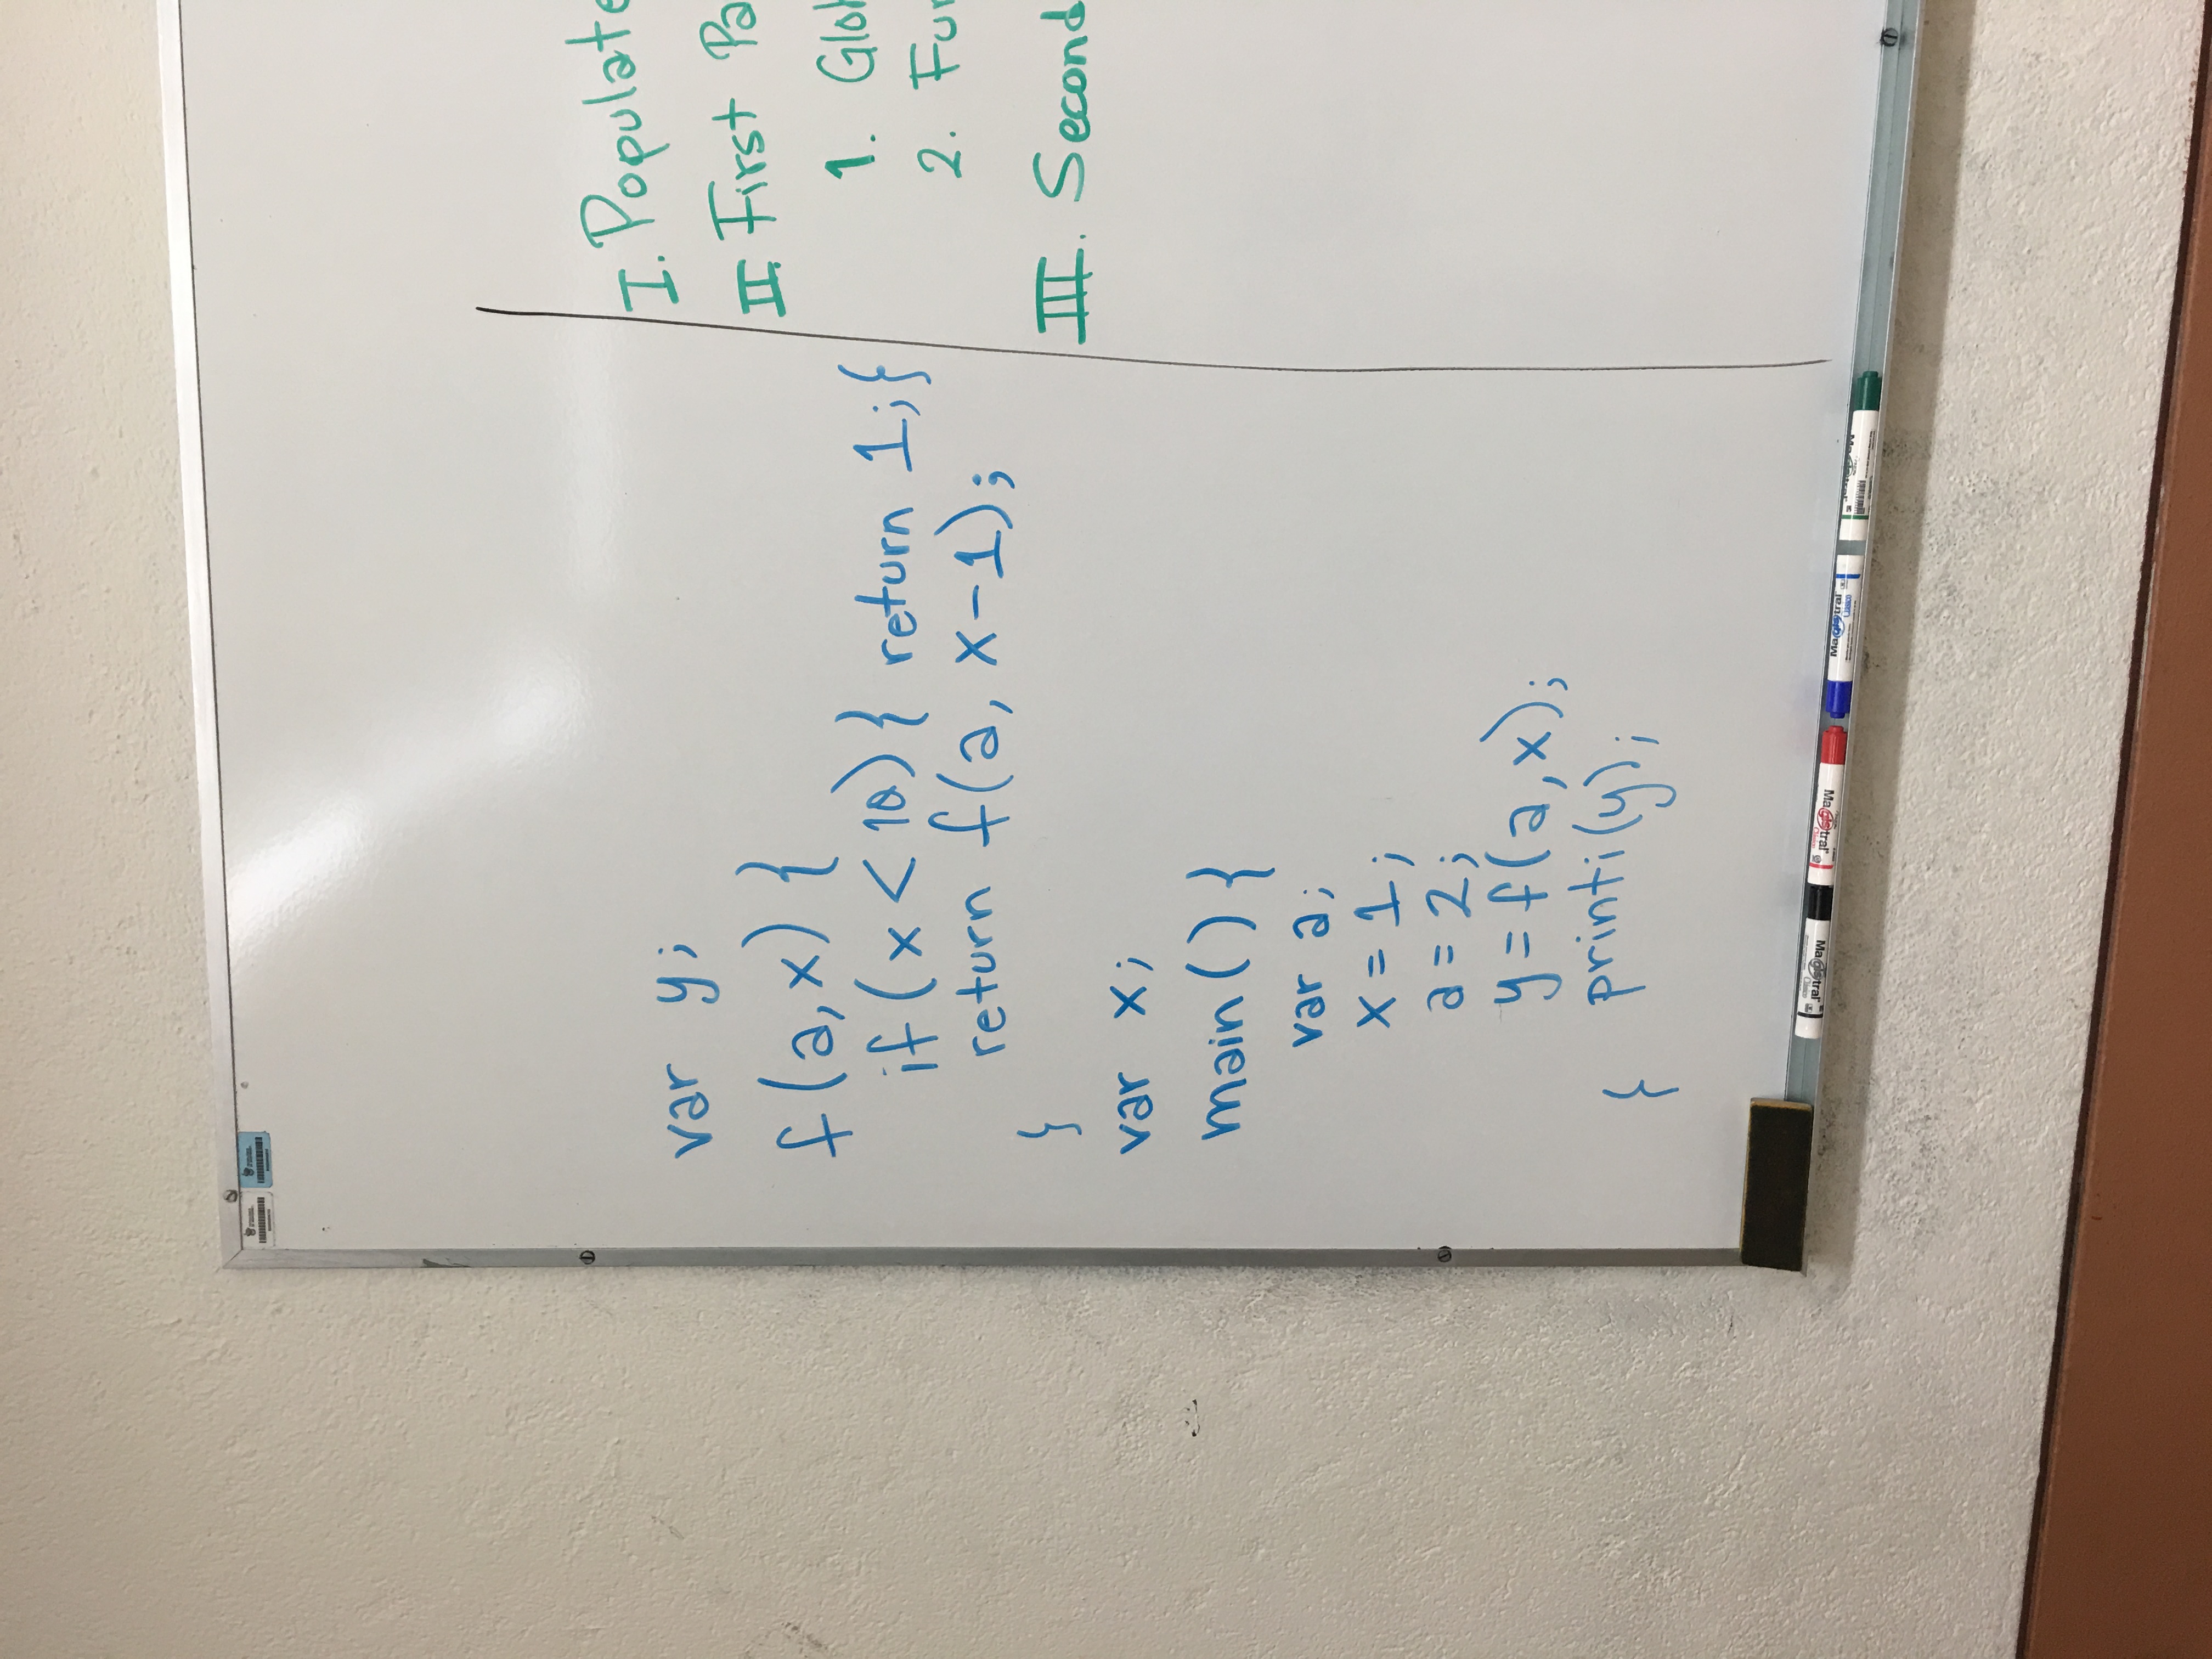 var y;
f(a,x) {
if(x < 10) { return 1; }
return f(a, x-1);
}
var x;
main() {
var a;
x = 1;
a = 2;
y = f(a,x);
printi(y);
}
I. Populate
II. First Pa
1. Glob
2. Fun
III. Second
Magistral
Magistral
Magistral
Magistral